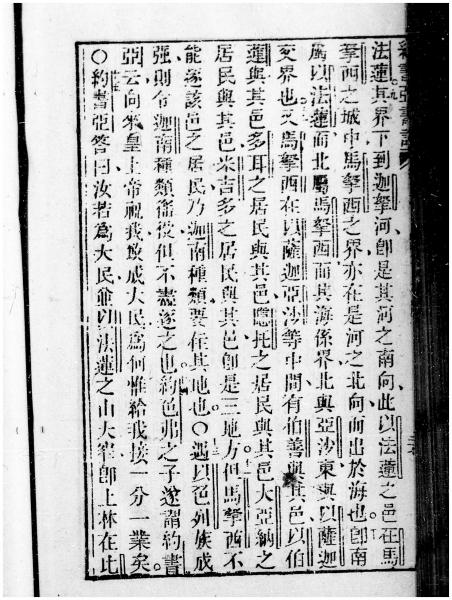 法蓮其界下到迦拏河卽是其河之南向此以法蓮之邑在馬
拏西之城中馬拏西之界亦在是河之北向而出於海也。卽南
屬以法蓮而北屬馬拏西而其海係界北與亞沙東與以薩迦
交界也。又馬拏西在以薩迦亞沙等中間有伯善與其邑以伯
蓮與其邑多耳之居民與其邑隱托之居民與其邑大亞納之
居民與其邑米吉多之居民與其邑卽是三地方但馬拏西不
能逐該邑之居民乃迦南種類要在其地也○遇以色列族成
強則令迦南種類徭役但不盡逐之也約色弗之子遂謂約書
亞云向來皇上帝祝我致成大民爲何惟給我接一分一業矣。
○約書亞答曰汝若爲大民爺以法蓮之山大窄卽上林在此